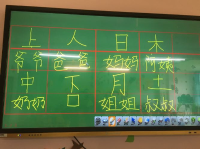 上 人 日 木
爷爷 爸爸 妈妈 阿姨
中 下 月 土
奶奶 口 姐姐 叔叔